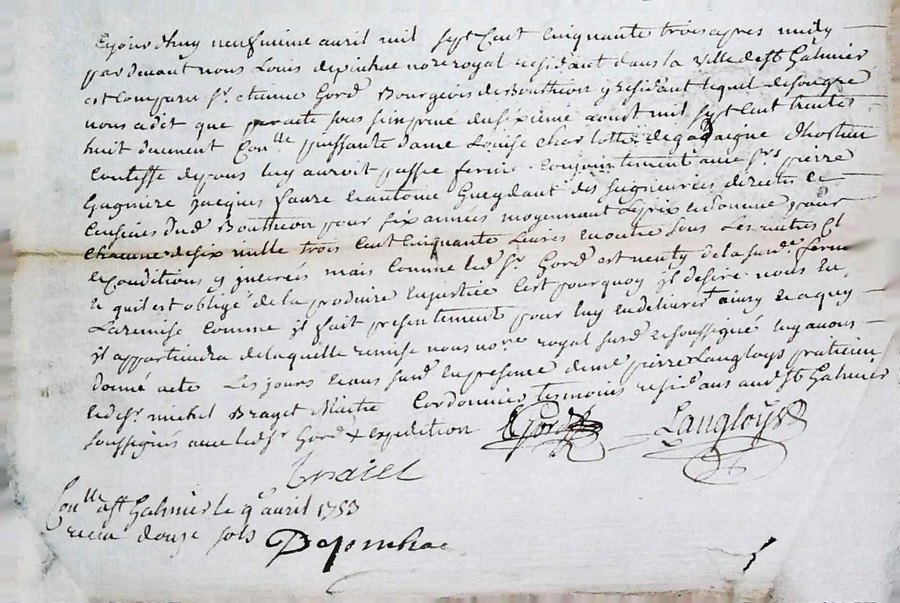 Ejourdhuy neufvieme avril mil sept Cent Cinquante trois apres midy
pardevant nous Louis notre royal residant dans la ville de St Galmier
est Comparu Sr. etienne Gord Bourgeois de Boutheon y residant lequel de son gre
nous a dit que par acte sous sein prive du sixieme aoust mil sept Cent trente
huit duement Conlle puissante dame Louise Charlotte de gadaigne dhostun
Contesse de pons luy auroit passé ferme Conjointement avec Srs. pierre
Gagniere jacques faure et antoine Gueydant des seigneuries directes et
Censives dud. Boutheon pour six années moyennant Le prix et somme pour
Chacune de six mille trois Cent Cinquante Livres en outre sous Les autres Cl.
et Conditions y inserés mais Comme led. Sr. Gord est nenty de la susd. ferme
et quil est obligé de la produire en justice Cest pourquoy il desire nous en
La remise Comme il fait presentement pour luy en delivrer ainsy et a quy
il appartiendra de laquelle remise nous nore royal susd. et soussigné luy avons
donné acte Les jours et ans susd. en presence de me pierre Langloys praticien
et de Sr. michel Braget Maitre Cordonnier temoins residans aud. St Galmier
soussignés avec led. Sr Gord + expedition
Gord
Langloys
Conlle a St Galmier le 9e avril 1753
recu douze sols